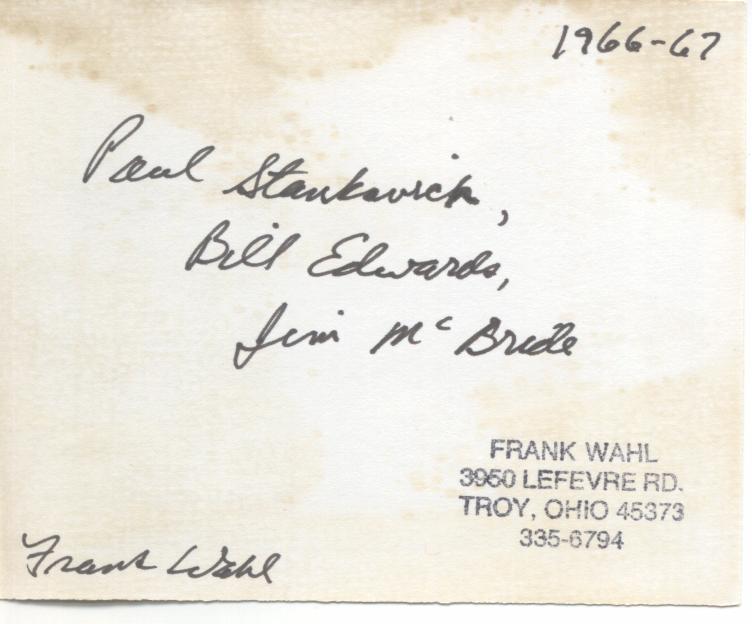 1966-67
Paul Stankovich,
Bill Edwards,
Jim McBride
FRANK WAHL
3950 LEFEVRE RD.
TROY, OHIO 45373
335-6794
Frank Wahl